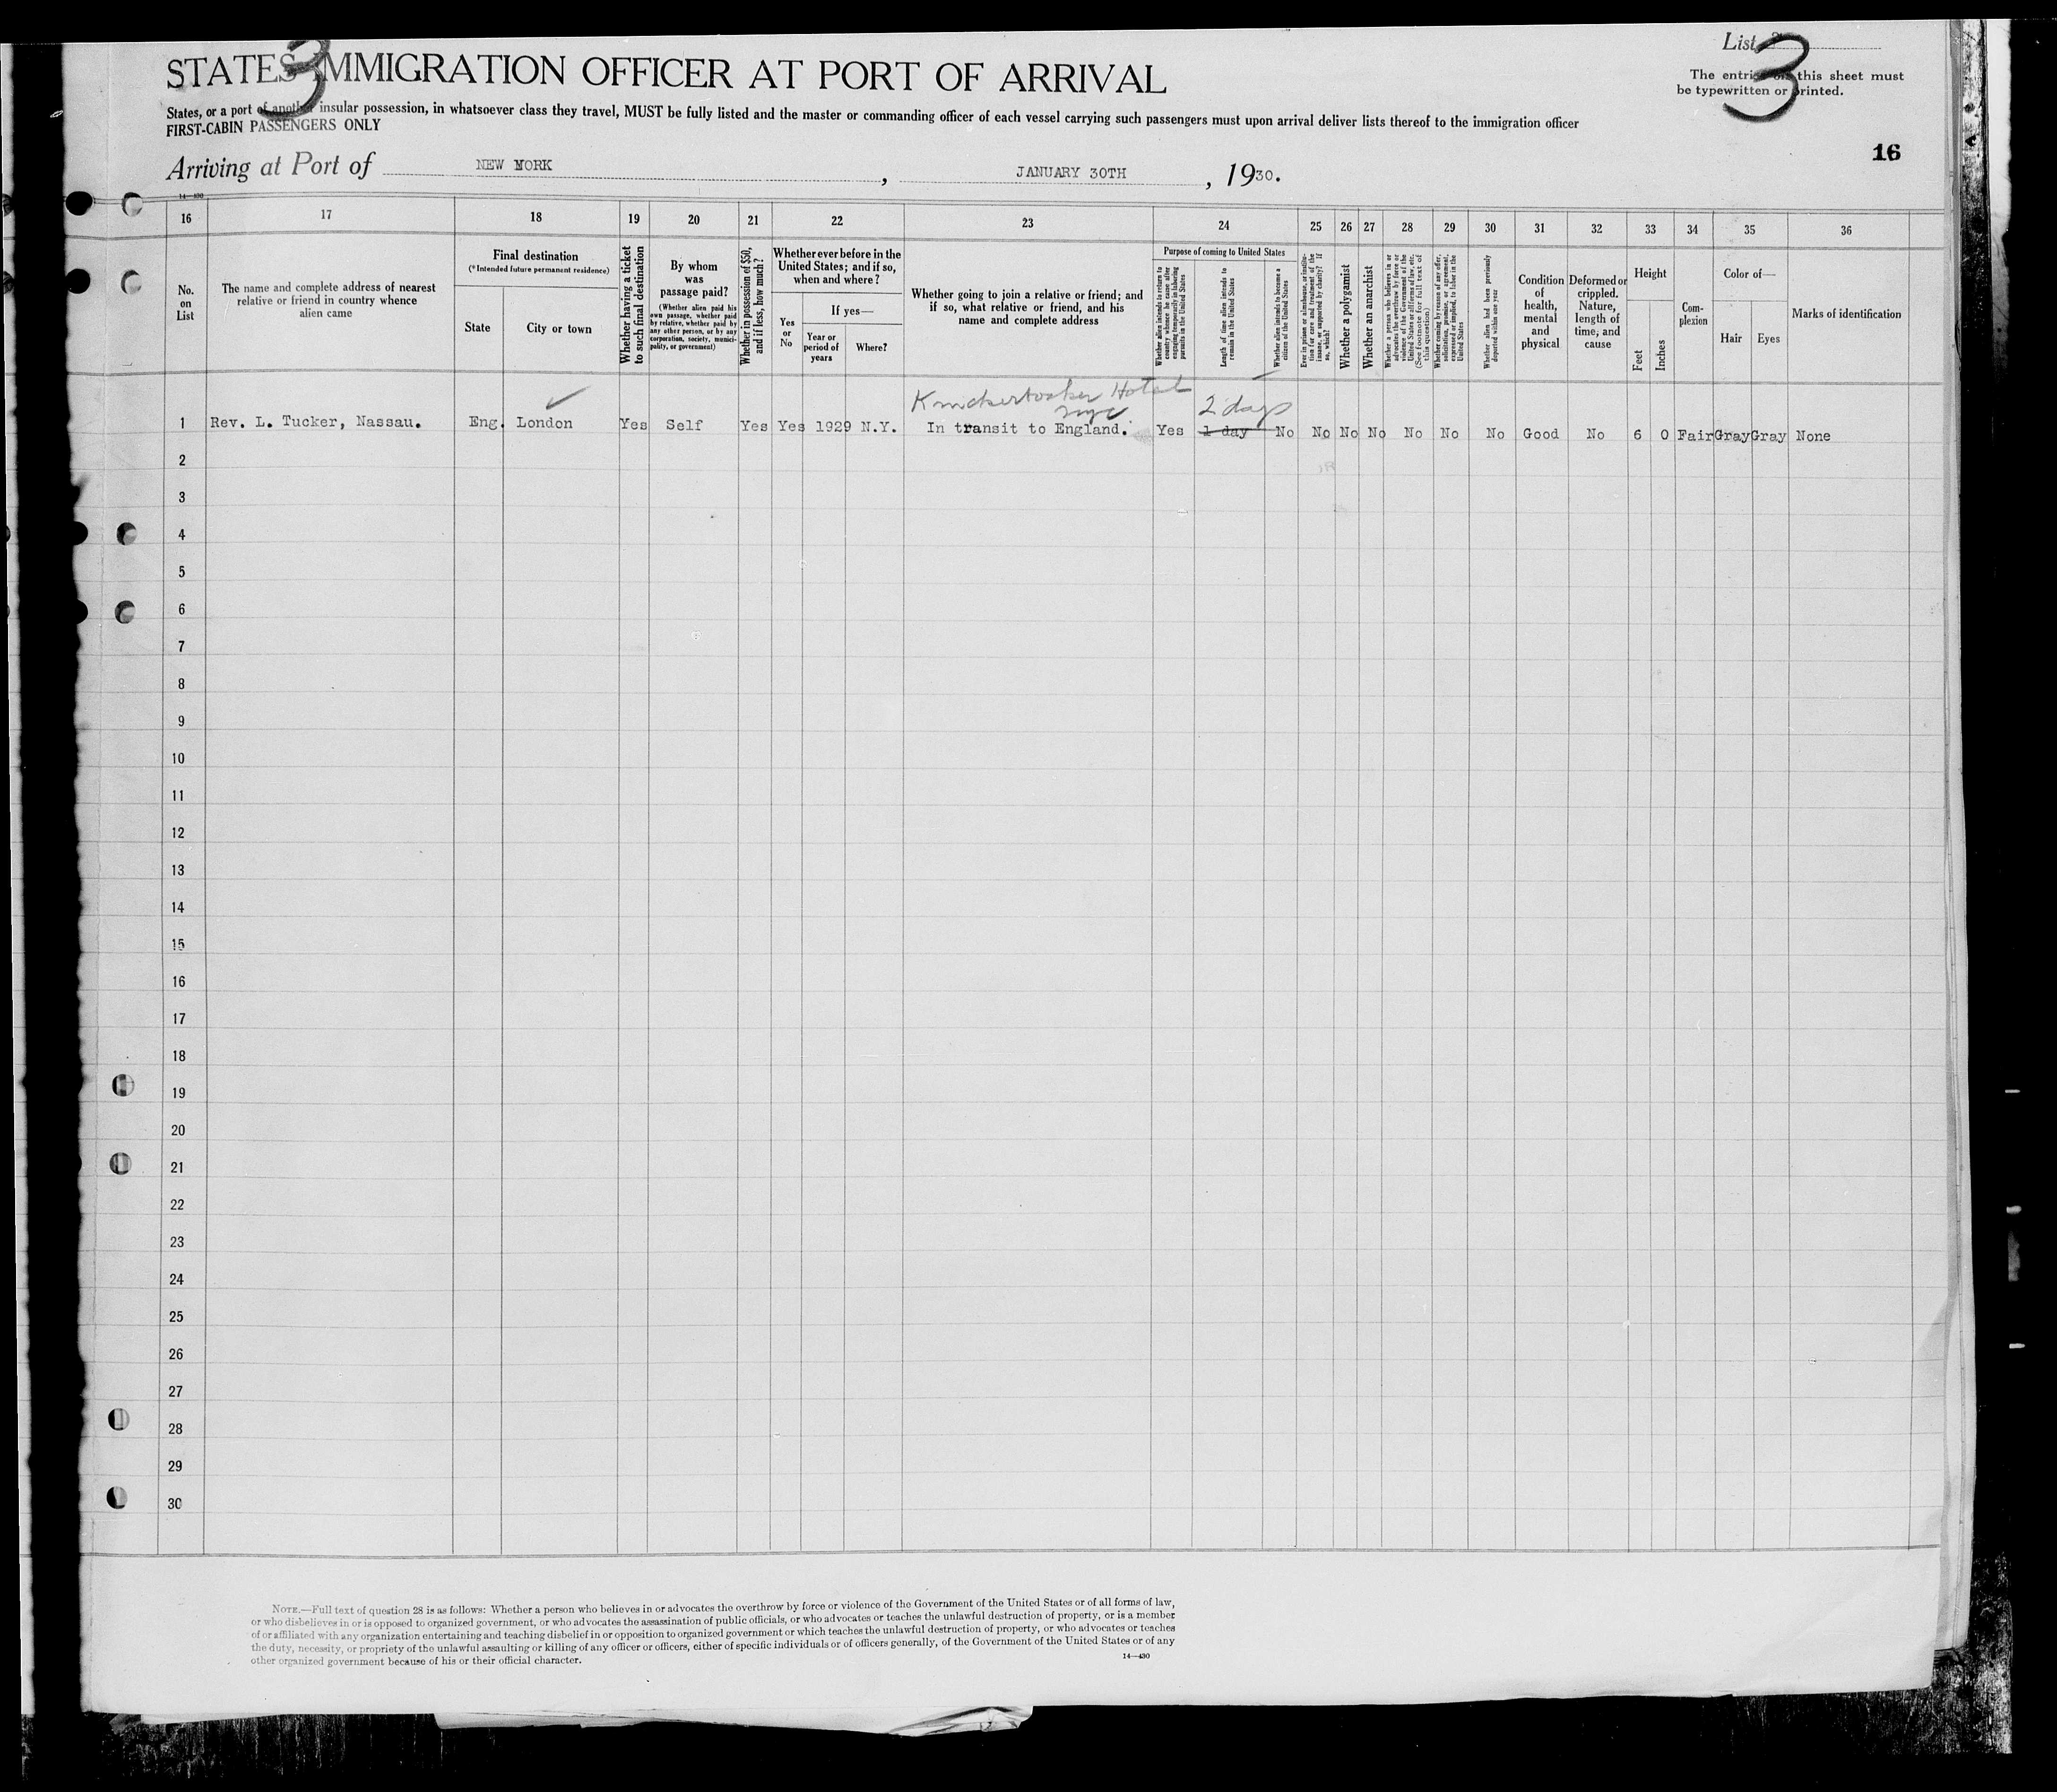 3
List 3
STATES IMMIGRATION OFFICER AT PORT OF ARRIVAL
The entries on this sheet must
be typewritten or printed.
States, or a port of another insular possession, in whatsoever class they travel, MUST be fully listed and the master or commanding officer of each vessel carrying such passengers must upon arrival deliver lists thereof to the immigration officer
FIRST-CABIN PASSENGERS ONLY
16
Arriving at Port of NEW YORK, JANUARY 30TH, 1930.
14—430
16 17 18 19 20 21 22 23 24 25 26 27 28 29 30 31 32 33 34 35 36
No.
on
List
The name and complete address of nearest
relative or friend in country whence
alien came
Final destination
(*Intended future permanent residence)
State
City or town
Whether having a ticket
to such final destination
By whom
was
passage paid?
(Whether alien paid his
own passage, whether paid
by relative, whether paid by
any other person, or by any
corporation, society, munici-
pality, or government)
Whether in possession of $50,
and if less, how much?
Whether ever before in the
United States; and if so,
when and where?
Yes
or
No
If yes—
Year or
period of
years
Where?
Whether going to join a relative or friend; and
if so, what relative or friend, and his
name and complete address
Purpose of coming to United States
Whether alien intends to return to
country whence he came after
engaging temporarily in laboring
pursuits in the United States
Length of time alien intends to
remain in the United States
Whether alien intends to become a
citizen of the United States
Ever in prison or almshouse, or institu-
tion for care and treatment of the
insane, or supported by charity? If
so, which?
Whether a polygamist
Whether an anarchist
Whether a person who believes in or
advocates the overthrow by force or
violence of the Government of the
United States or all forms of law, etc.
(See footnote for full text of
this question)
Whether coming by reason of any offer,
solicitation, promise, or agreement,
expressed or implied, to labor in the
United States
Whether alien had been previously
deported within one year
Condition
of
health,
mental
and
physical
Deformed or
crippled.
Nature,
length of
time, and
cause
Height
Feet
Inches
Com-
plexion
Color of—
Hair
Eyes
Marks of identification
Knickerbocker Hotel
NYC
2 days
1 Rev. L. Tucker, Nassau. Eng. London Yes Self Yes Yes 1929 N.Y. In transit to England. Yes 1 day No No No No No No No Good No 6 0 Fair Gray Gray None
2
3
4
5
6
7
8
9
10
11
12
13
14
15
16
17
18
19
20
21
22
23
24
25
26
27
28
29
30
NOTE.—Full text of question 28 is as follows: Whether a person who believes in or advocates the overthrow by force or violence of the Government of the United States or of all forms of law,
or who disbelieves in or is opposed to organized government, or who advocates the assassination of public officials, or who advocates or teaches the unlawful destruction of property, or is a member
of or affiliated with any organization entertaining and teaching disbelief in or opposition to organized government or which teaches the unlawful destruction of property, or who advocates or teaches
the duty, necessity, or propriety of the unlawful assaulting or killing of any officer or officers, either of specific individuals or of officers generally, of the Government of the United States or of any
other organized government because of his or their official character.
14—430